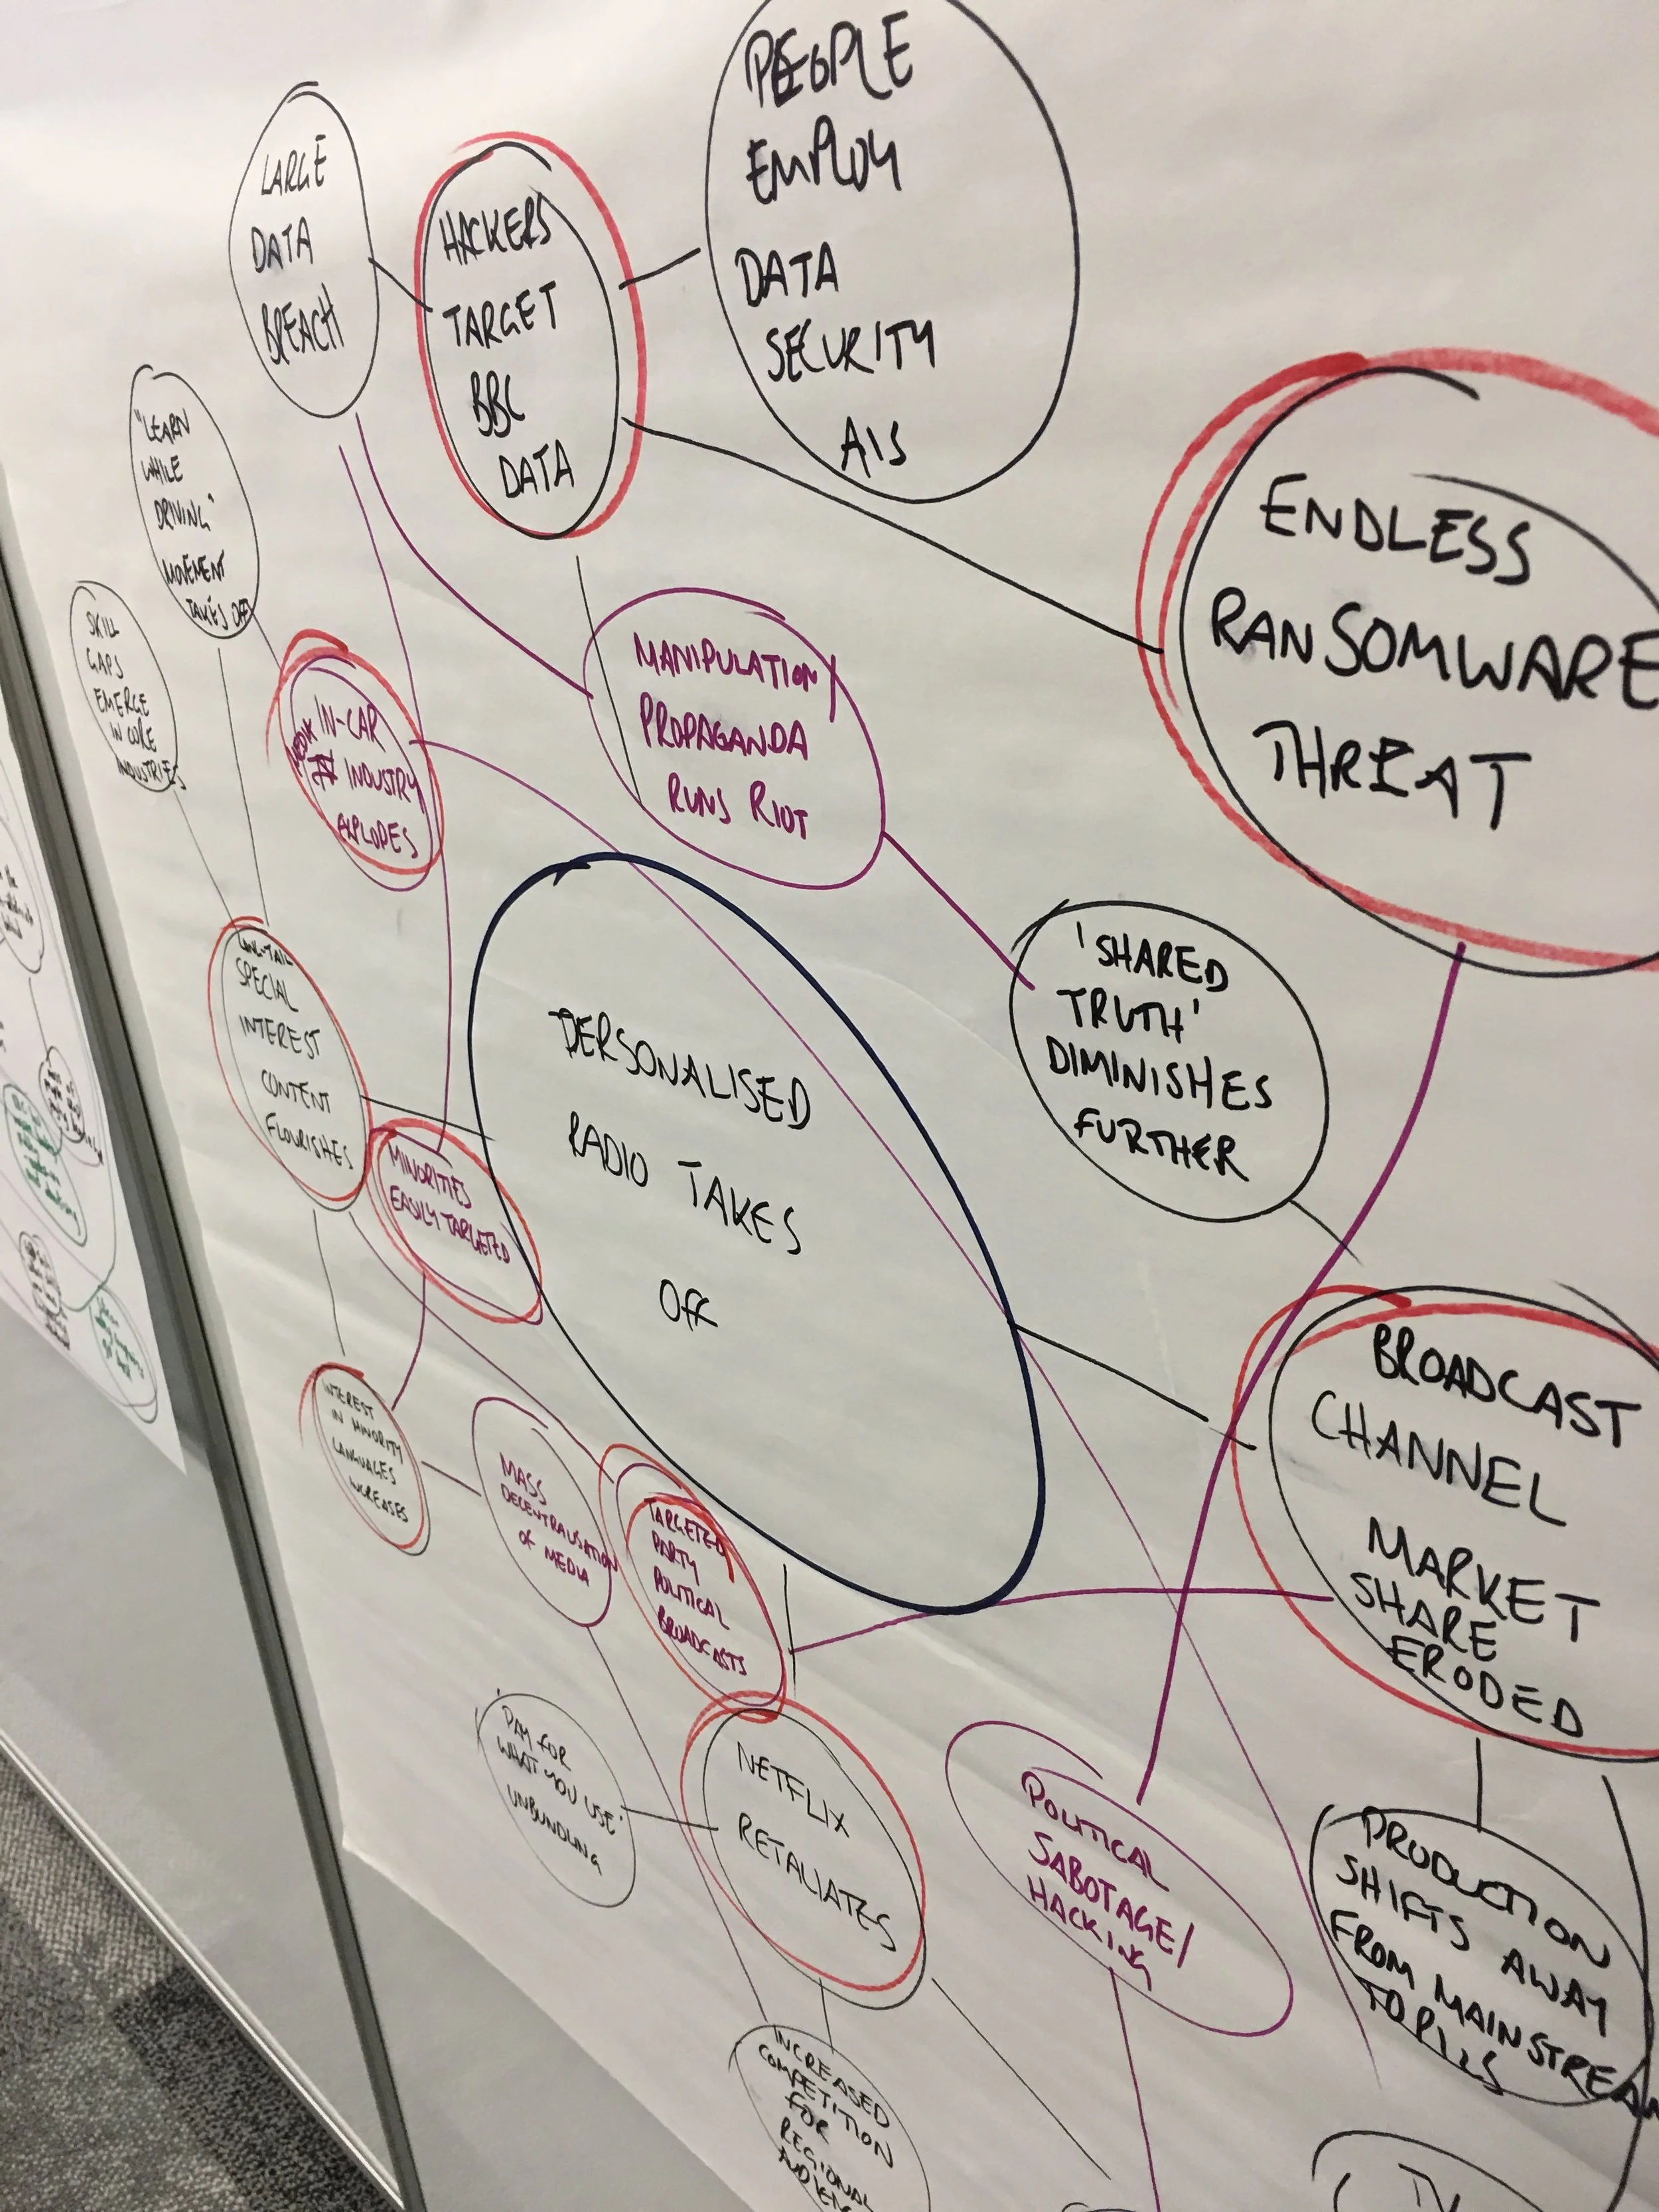 PEOPLE
EMPLOY
DATA
SECURITY
AIS
LARGE
DATA
BREACH
HACKERS
TARGET
BBC
DATA
"LEARN
WHILE
DRIVING"
MOVEMENT
TAKES OFF
ENDLESS
RANSOMWARE
THREAT
SKILL
GAPS
EMERGE
IN CORE
INDUSTRIES
IN-CAR
MEDIA INDUSTRY
EXPLODES
MANIPULATION/
PROPAGANDA
RUNS RIOT
'SHARED
TRUTH'
DIMINISHES
FURTHER
LONG-TAIL
SPECIAL
INTEREST
CONTENT
FLOURISHES
PERSONALISED
RADIO TAKES
OFF
MINORITIES
EASILY TARGETED
BROADCAST
CHANNEL
MARKET
SHARE
ERODED
INTEREST
IN MINORITY
LANGUAGES
INCREASES
MASS
DECENTRALISATION
OF MEDIA
TARGETED
PARTY
POLITICAL
BROADCASTS
'PAY FOR
WHAT YOU USE'
UNBUNDLING
NETFLIX
RETALIATES
POLITICAL
SABOTAGE/
HACKING
PRODUCTION
SHIFTS AWAY
FROM MAINSTREAM
TOPICS
INCREASED
COMPETITION
FOR
REGIONAL
TV